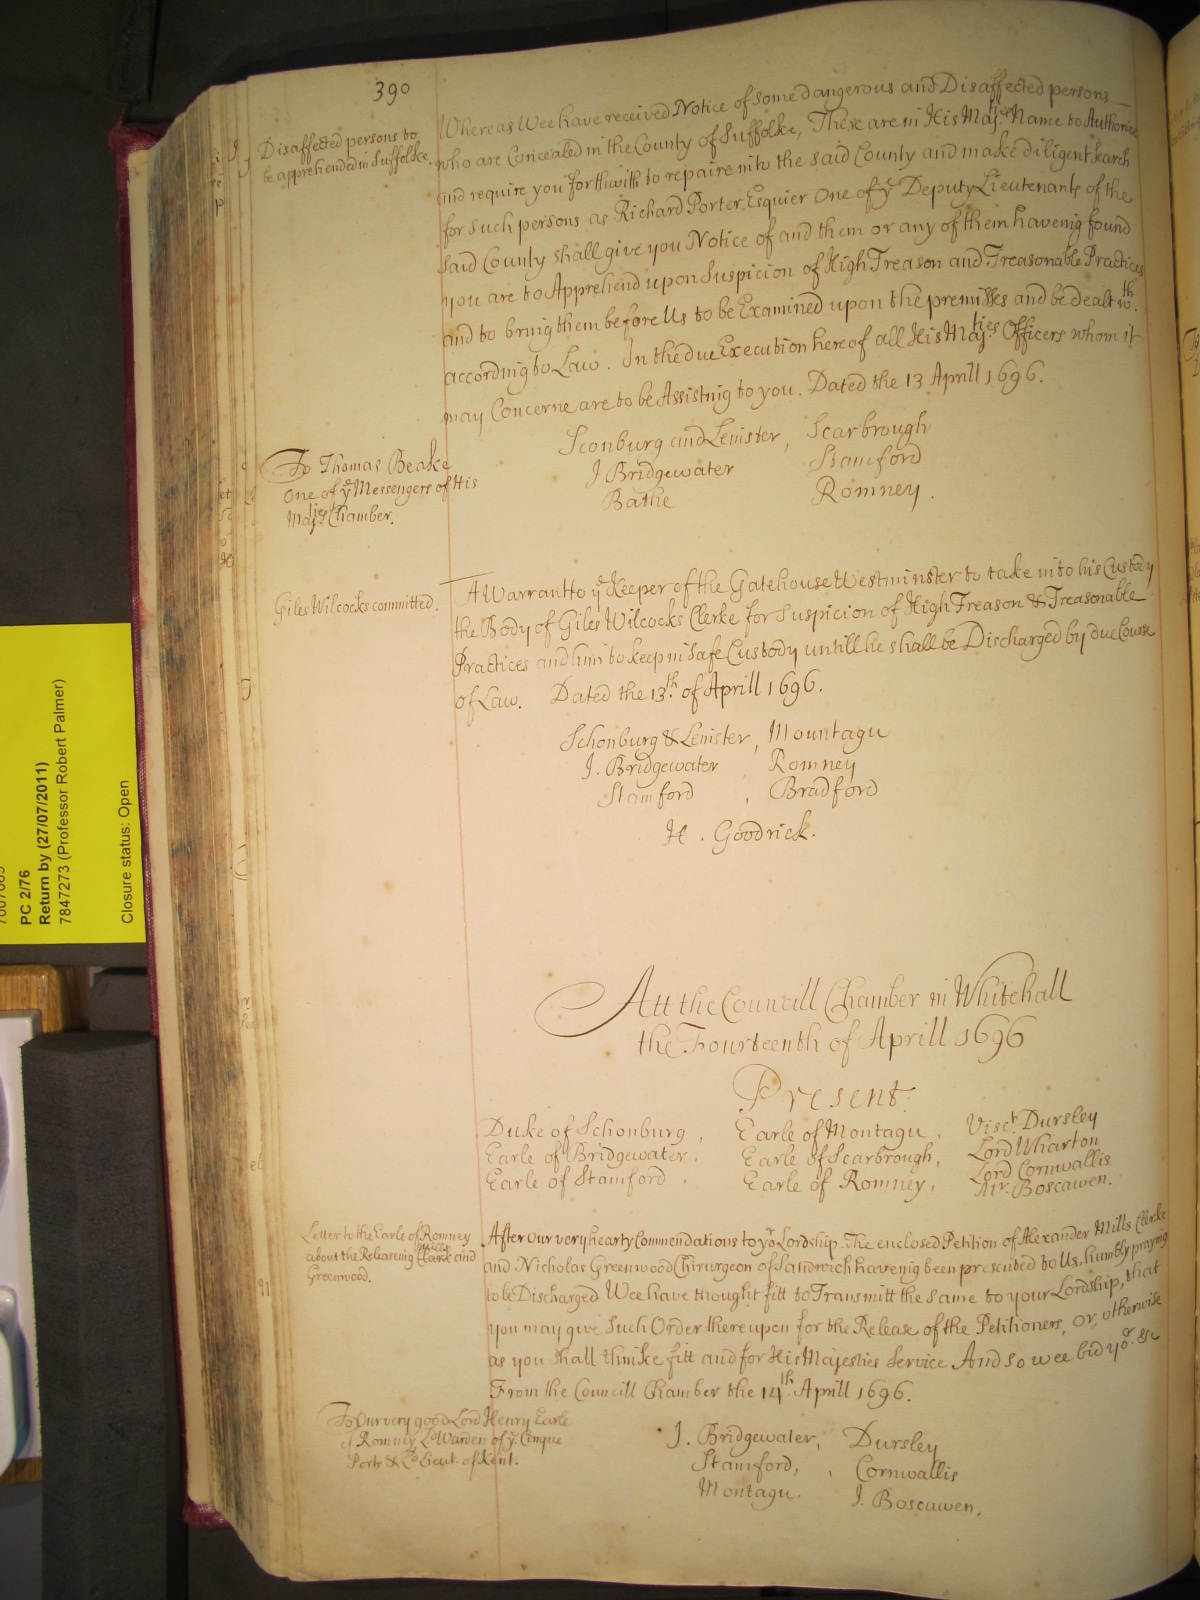 390
Disaffected persons to
be apprehended in Suffolke.
Whereas Wee have received Notice of some dangerous and Disaffected persons
who are Concealed in the County of Suffolke, These are in His Maj.ties Name to Authorize
and require you forthwith to repaire into the said County and make diligent search
for such persons as Richard Porter Esquier One of ye Deputy Lieutenants of the
said County shall give you Notice of and them or any of them haveing found
you are to Apprehend upon Suspicion of High Treason and Treasonable Practices
and to bring them before Us to be Examined upon the premisses and be dealt wth.
according to Law. In the due Execution hereof all His Maj.ties Officers whom it
may Concerne are to be Assisting to you. Dated the 13 Aprill 1696.
Sconburg and Leinster, Scarbrough
J Bridgewater Stamford
Bathe Romney.
To Thomas Beake
One of ye Messengers of His
Maj.ties Chamber.
Giles Wilcocks committed.
A Warrant to ye Keeper of the Gatehouse Westminster to take into his Custody
the Body of Giles Wilcocks Clerke for Suspicion of High Treason & Treasonable
Practices and him to keep in Safe Custody untill he shall be Discharged by due Course
of Law. Dated the 13th. of Aprill 1696.
Schonburg & Leinster, Mountagu
J. Bridgewater, Romney
Stamford, Bradford
H. Goodrick.
Att the Councill Chamber in Whitehall
the Fourteenth of Aprill 1696
Present.
Duke of Schonburg, Earle of Montagu, Visct. Dursley
Earle of Bridgewater, Earle of Scarbrough, Lord Wharton
Earle of Stamford, Earle of Romney, Lord Cornwallis
Mr. Boscawen.
Letter to the Earle of Romney
about the Releaseing Mills Clark and
Greenwood.
After Our very hearty Commendations to yr Lordship. The enclosed Petition of Alexander Mills Clerke
and Nicholas Greenwood Chirurgeon of Sandwich haveing been presented to Us, humbly praying
to be Discharged Wee have thought fitt to Transmitt the same to your Lordship, that
you may give such Order thereupon for the Release of the Petitioners, or, otherwise
as you shall thinke fitt and for His Majesties Service And so wee bid yor. &c
From the Councill Chamber the 14th. Aprill 1696.
To Our very good Lord Henry Earle
of Romney Ld Warden of ye. Cinque
Ports & Ld Lieut. of Kent.
J. Bridgewater, Dursley
Stamford, Cornwallis
Montagu. J. Boscawen.
PC 2/76
Return by (27/07/2011)
7847273 (Professor Robert Palmer)
Closure status: Open